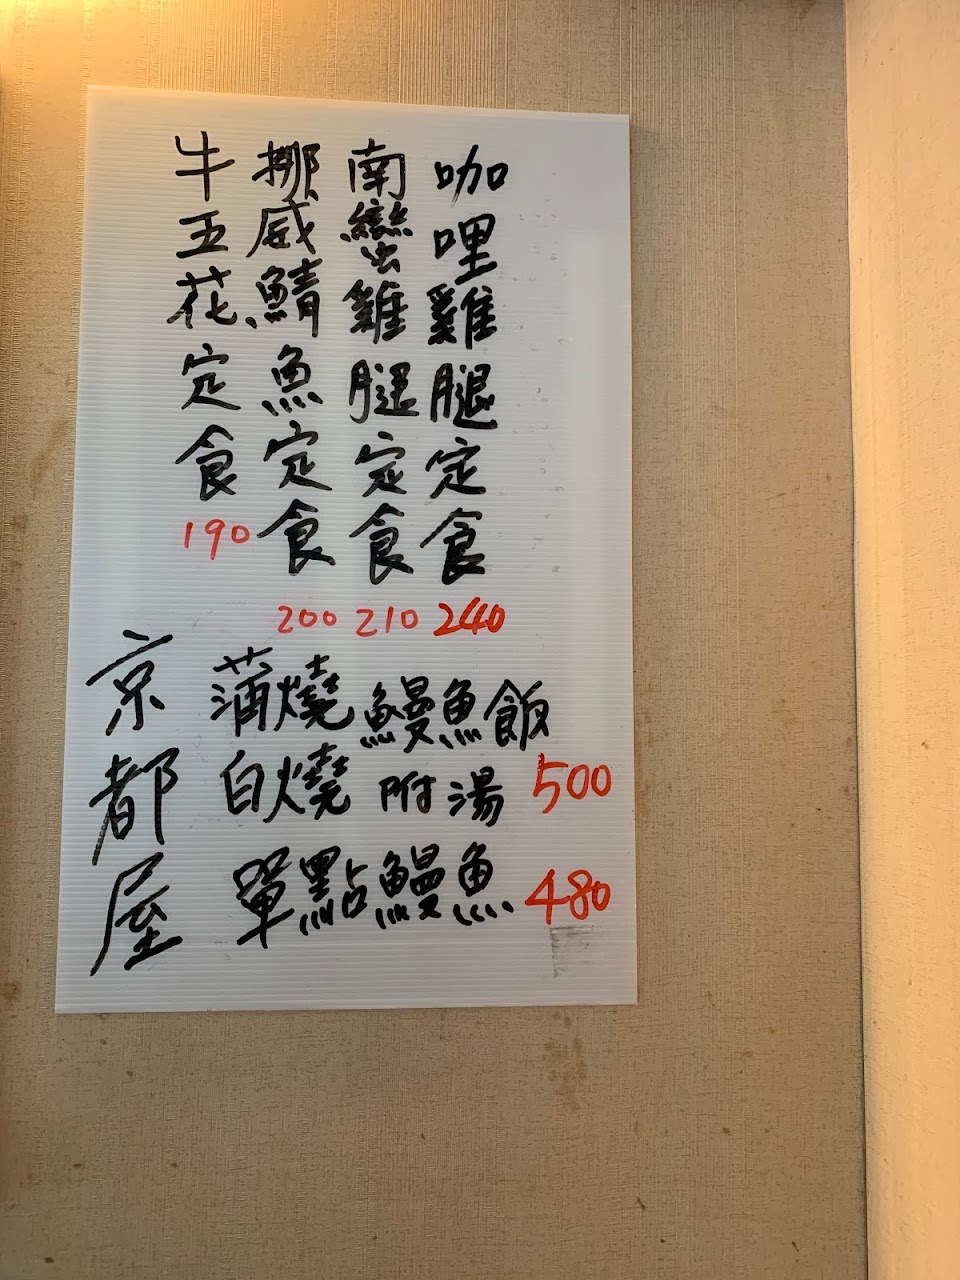 咖哩雞腿定食
240
南蠻雞腿定食
210
挪威鯖魚定食
200
牛五花定食
190
京都屋
蒲燒 鰻魚飯
白燒 附湯 500
單點鰻魚 480